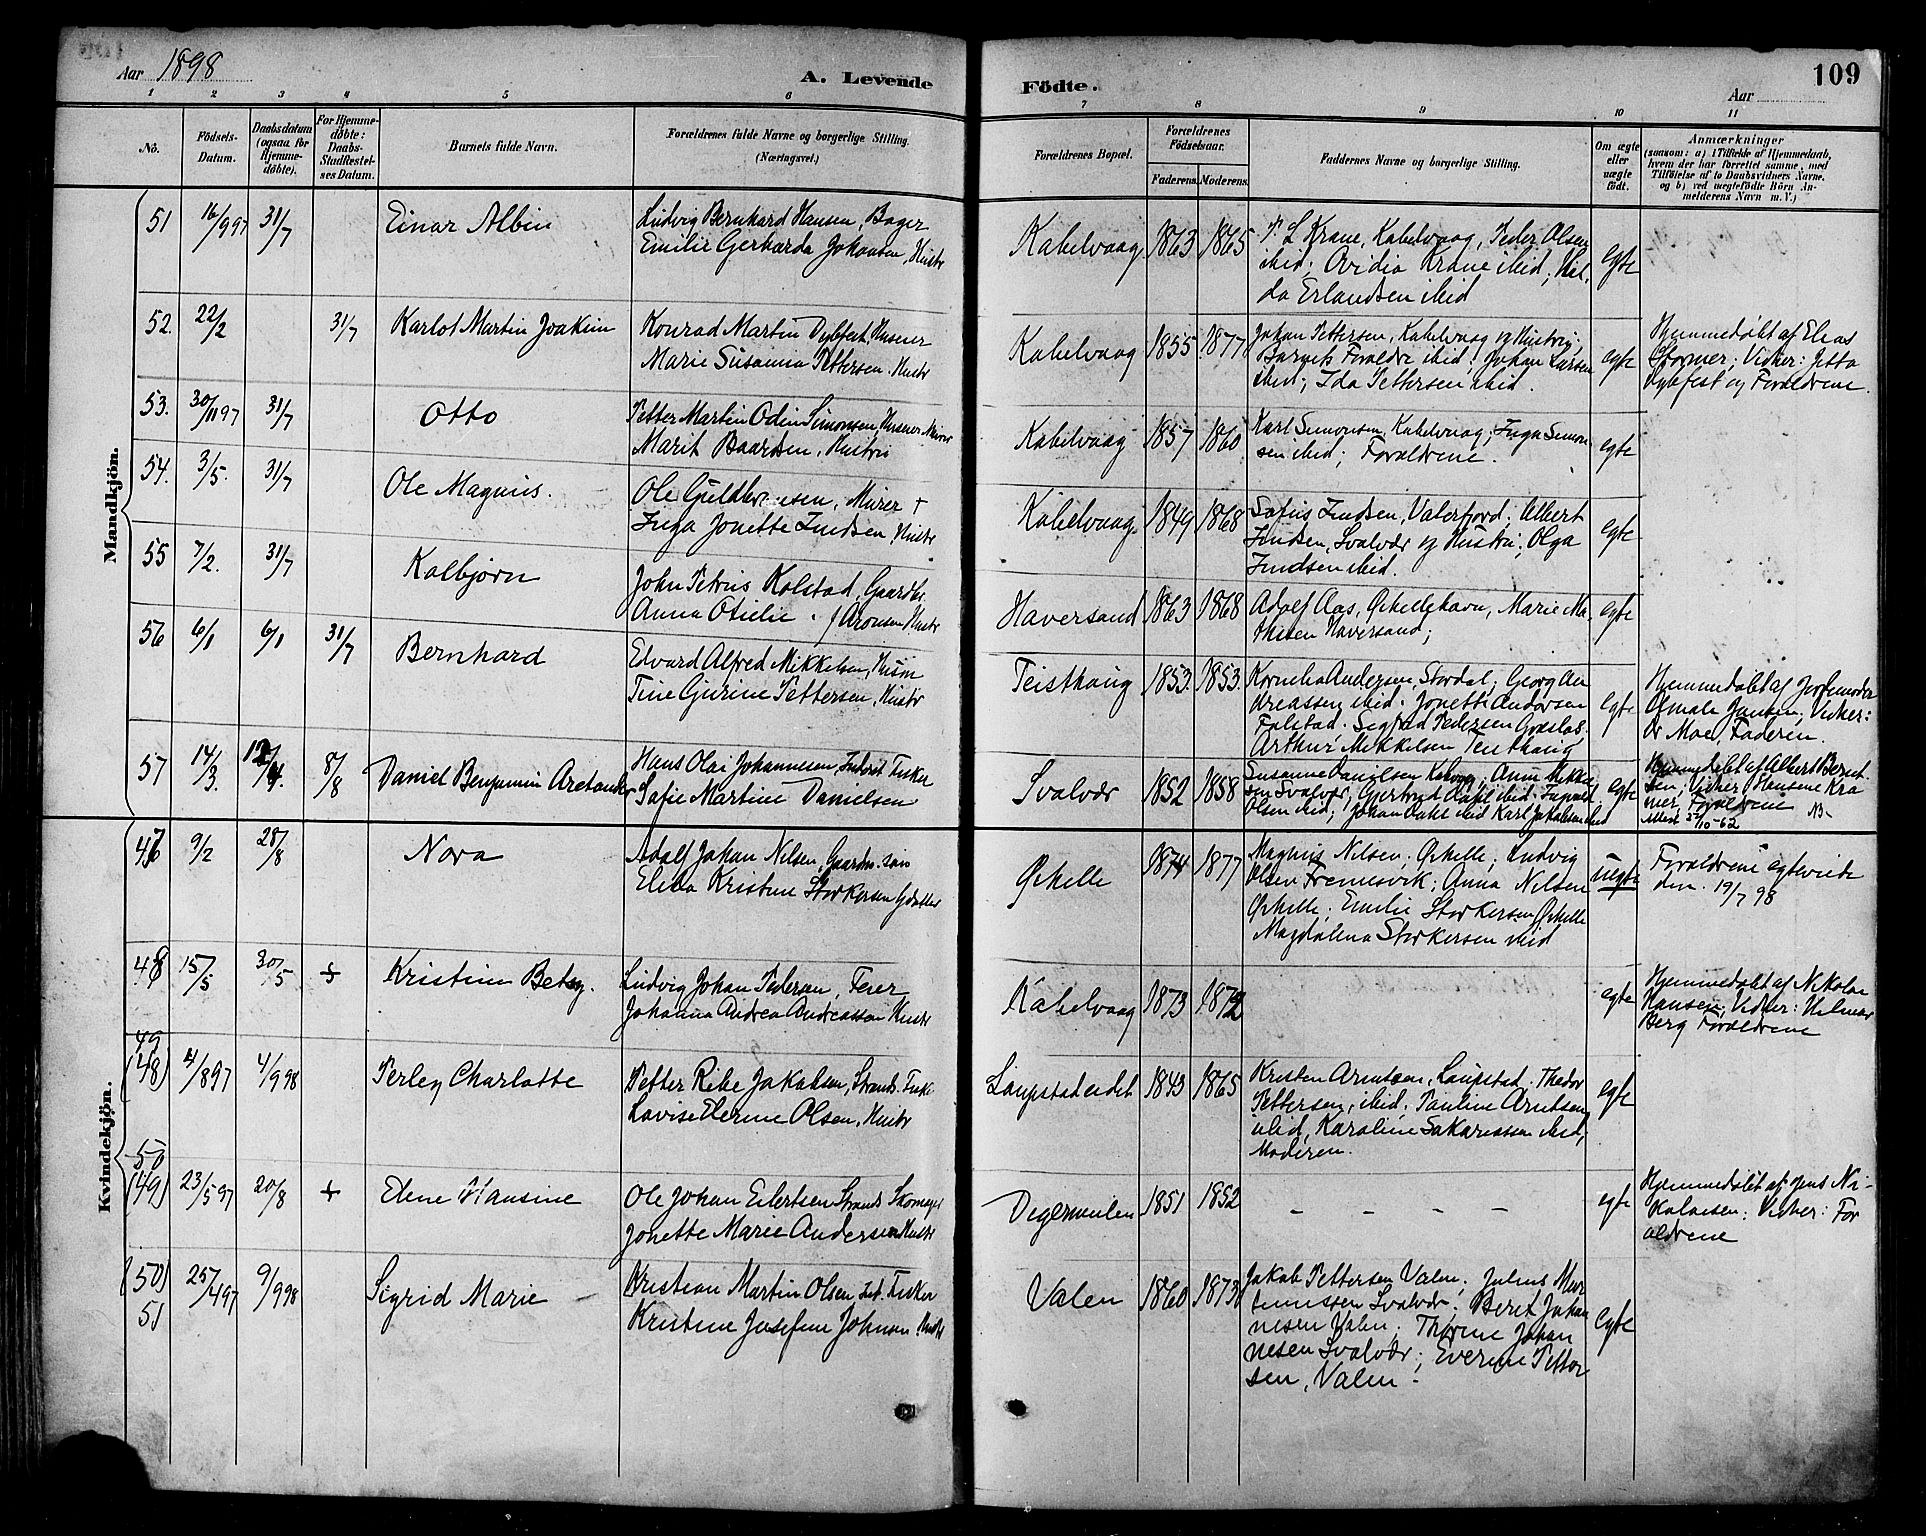 Aar 1898
A. Levende
Födte.
109
Aar
1 2 3 4 5 6 7 8 9 10 11
No.
Födsels-
Datum.
Daabsdatum
(ogsaa for
Hjemme-
døbte).
For Hjemme-
døbte:
Daabs-
Stadfæstel-
ses Datum.
Barnets fulde Navn.
Forældrenes fulde Navne og borgerlige Stilling.
(Næringsvei.)
Forældrenes Bopæl.
Forældrenes
Födselsaar.
Faderens. Moderens.
Faddernes Navne og borgerlige Stilling.
Om ægte
eller
uægte
født.
Anmærkninger
(saasom: a) i Tilfælde af Hjemmedaab,
hvem der har forrettet samme, med
Tilføielse af to Daabsvidners Navne,
og b) ved uægtefödte Börn An-
melderens Navn m. V.)
Mandkjön.
51 16/9 97 31/7 Einar Albin
Ludvig Bernhard Hansen, Bager
Emilie Gerharda Johansen, Hustr
Kabelvaag 1863 1865
P. L Krane, Kabelvaag, Peder Olsen
ibid; Ovidia Krane ibid; Hul-
da Erlandsen ibid
egte
52. 22/2 31/7 Karlot Martin Joakim
Konrad Martin Dybfest, Huseier
Marie Susanna Pettersen, Hustr
Kabelvaag 1855 1877
Johan Pettersen, Kabelvaag og Hustru;
Barnets Forældre ibid; Johan Larsen
ibid; Ida Pettersen ibid.
egte
Hjemmedøbt af Elias
Stormer; Vidner: Jetta
Dybfest og Forældrene.
53. 30/11 97 31/7 Otto
Petter Martin Odin Simonsen, Huseier Murer
Marit Baardsen, Hustru
Kabelvaag 1857 1860
Karl Simonsen, Kabelvaag; Inga Simon
sen ibid; Forældrene.
egte
54. 3/5. 31/7 Ole Magnus.
Ole Guldbr sen, Murer +
Inga Jonette Indsen, Hustr
Kabelvaag. 1849 1868
Sofus Indsen, Valerfjord; Albert
Indsen, Svolvær og Hustru; Olga
Indsen ibid.
egte
55 7/2. 31/7 Kolbjørn
John Petrus Kolstad, Gaardbr.
Anna Otielie f Aronsen Hustr
Haversand 1863 1868
Adolf Aas, Ørkellehavn, Marie Ma-
thisen Haversand;
egte
56 6/1 6/1 31/7 Bernhard
Edvard Alfred Mikkelsen, Husm
Tine Gurine Pettersen, Hustr
Teisthaug 1853. 1853.
Kornelia Andersen, Stordal; Georg An
dreassen ibid; Jonette Andersen
Falstad. Sigfrid Pedersen
Arthur Mikkelsen Teisthaug
egte
Hjemmedøbt af Jordemoder
Jansen; Vidner:
Dr Moe, Faderen.
57 14/3. 12/4. 8/8 Daniel Benjamin Aretander
Hans Olai Johannesen, Inderst Fisker
Sofie Martine Danielsen
Svolvær 1852 1858
Susanne Danielsen Kabelvaag; Anne Mikkel
sen Svolvær, Gjertrud Dahl ibid;
Olsen ibid; Johan Dahl ibid Karl Jakobsen ibid
egte
Hjemmedøbt af Albert Bernt-
sen; Vidner Hansine Kra
mer, Forældrene
Attest 27/10-62
Kvindekjön.
47 9/2 28/8 Nora
Adolf Johan Nilsen, Gaardm. søn
Elida Kristine Storkersen Gdatter
Ørkelle 1874 1877
Magnus Nilsen, Ørkelle; Ludvig
Olsen Fremesvik; Anna Nilsen
Ørkelle; Emilie Storkersen Ørkelle
Magdalena Storkersen ibid
uegte
Forældrene egteviede
den 19/7 98
48 15/5 30/5 + Kristine Betzy.
Ludvig Johan Pedersen, Feier
Johanna Andrea Andreassen Hustr
Kabelvaag 1873 1872
egte
Hjemmedøbt af Nikolai
Hansen; Vidner: Hilmar
Berg Forældrene
49
(48) 4/8 97 4/9 98 Perley Charlotte
Petter Ribe Jakobsen, Strands. Fisker
Lovise Elerine Olsen, Hustr
Laupstadeidet 1843 1865
Kristen Arntsen, Laupstad; Thedor
Pettersen, ibid; Pauline Arntsen
ibid, Karoline Sakariassen ibid,
Moderen.
egte
50
(49) 23/5 97 20/8 + Elene Hansine
Ole Johan Eilertsen Strands Skomager
Jonette Marie Andersen Hustr
Digermulen 1851 1852
– – – –
egte
Hjemmedøbt af Jens Ni-
kolaisen; Vidner: For
ældrene
(50) 25/4 97 9/9 98 Sigrid Marie
51
Kristian Martin Olsen Ind. Fisker
Kristine Josefine Johnsen, Hustr
Valen 1860 1873
Jakob Pettersen Valen; Julius Mor
tinussen Svolvær; Berit Johan
nesen Valen; Thorine Johan
nesen Svolvær; Everine Petter
sen, Valen.
egte